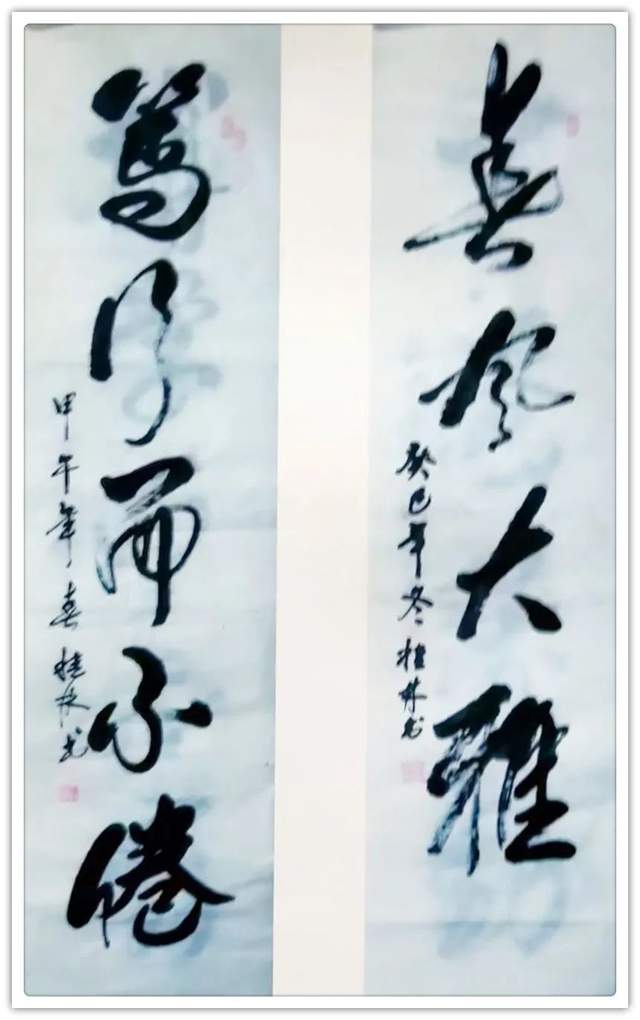 春风大雅
癸巳年冬桂林书
篤行而不倦
甲午年春桂林书